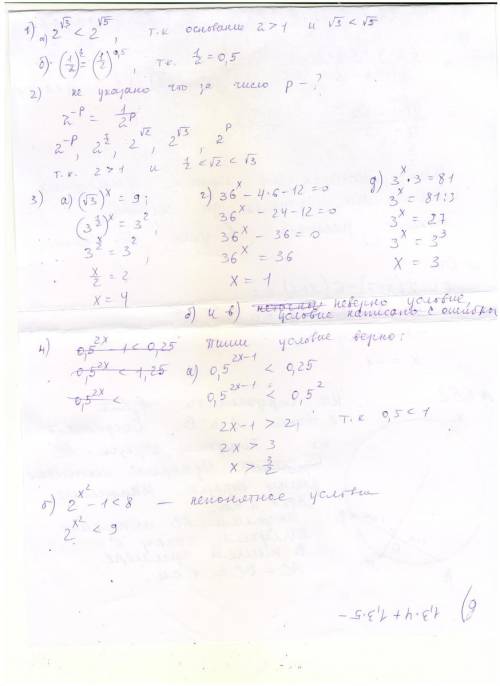 1) а) 2^√3 < 2^√5, т.к основание 2 > 1 и √3 < √5
б) (1/2)^(1/2) = (1/2)^0,5, т.к. 1/2 = 0,5
2) не указано что за число p - ?
2^-p = 1/2^p
2^-p, 2^(1/2), 2^√2, 2^√3, 2^p
т.к. 2 > 1 и 1/2 < √2 < √3
3) а) (√3)^x = 9;
(3^(1/2))^x = 3^2;
3^(x/2) = 3^2;
x/2 = 2
x = 4
г) 36^x - 4·6 - 12 = 0
36^x - 24 - 12 = 0
36^x - 36 = 0
36^x = 36
x = 1
д) 3^x · 3 = 81
3^x = 81:3
3^x = 27
3^x = 3^3
x = 3
б) и в) неверно условие,
условие написано с ошибкой
4) 0,5^2x - 1 < 0,25
0,5^2x < 1,25
0,5^2x <
Пиши условие верно:
а) 0,5^(2x-1) < 0,25
0,5^(2x-1) < 0,5^2
2x-1 > 2, т.к 0,5 < 1
2x > 3
x > 3/2
б) 2^x^2 - 1 < 8 — непонятное условие
2^x^2 < 9
б) 1,3·4 + 1,3·5 -